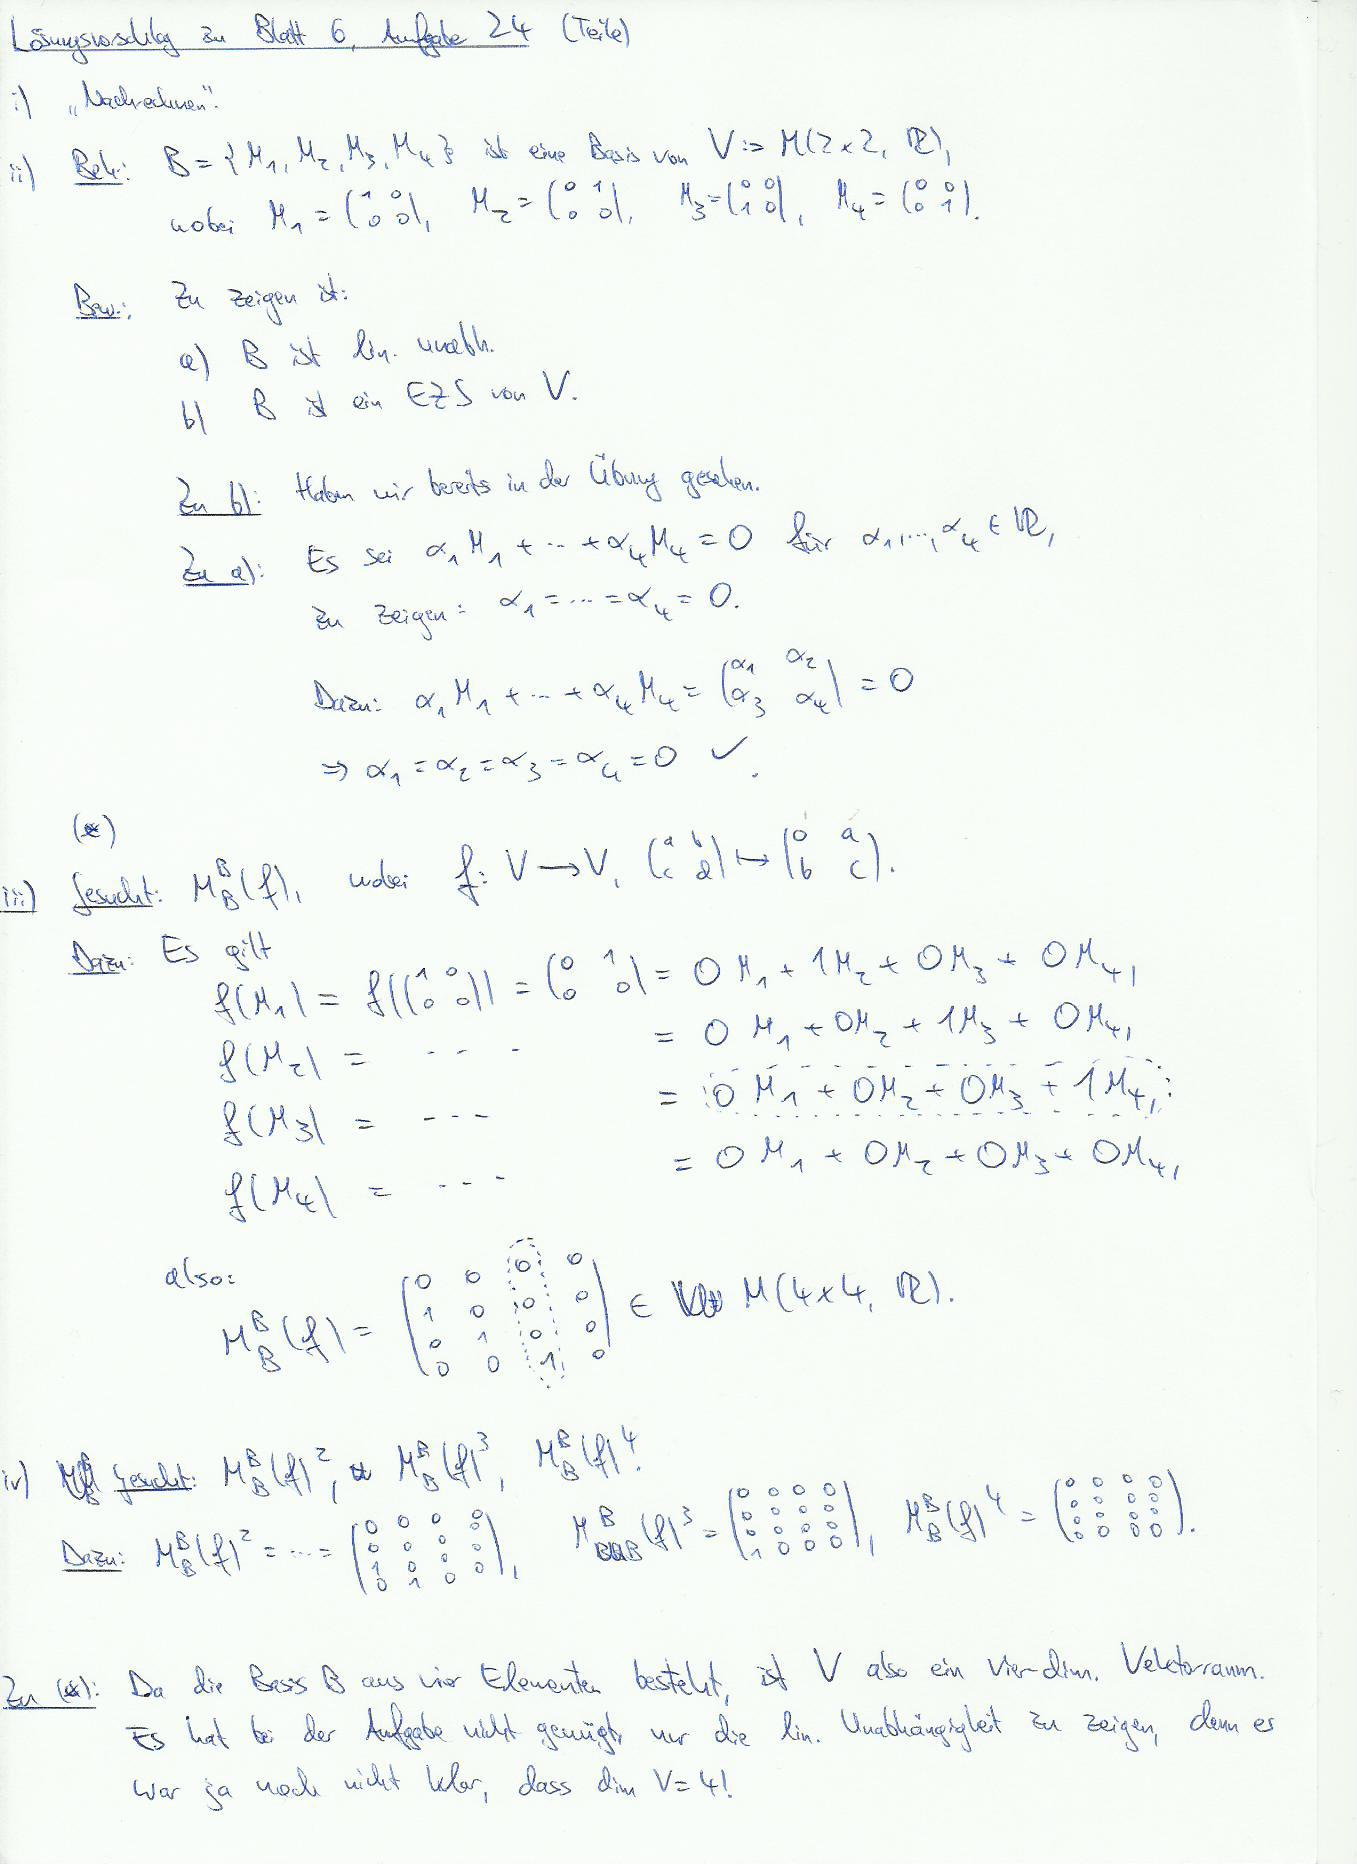 Lösungsvorschlag zu Blatt 6, Aufgabe 24 (Teile)
i) „Nachrechnen“.
ii) Beh.: B = {M₁, M₂, M₃, M₄} ist eine Basis von V := M(2×2, ℝ),
wobei M₁ = (1 0; 0 0), M₂ = (0 1; 0 0), M₃ = (0 0; 1 0), M₄ = (0 0; 0 1).
Bew.: Zu zeigen ist:
a) B ist lin. unabh.
b) B ist ein EZS von V.
Zu b): Haben wir bereits in der Übung gesehen.
Zu a): Es sei α₁M₁ + ... + α₄M₄ = 0 für α₁,...,α₄ ∈ ℝ,
zu zeigen: α₁ = ... = α₄ = 0.
Dazu: α₁M₁ + ... + α₄M₄ = (α₁ α₂; α₃ α₄) = 0
⇒ α₁ = α₂ = α₃ = α₄ = 0 ✓.
(*)
iii) Gesucht: M_B^B(f), wobei f: V → V, (a b; c d) ↦ (0 a; b c).
Dazu: Es gilt
f(M₁) = f((1 0; 0 0)) = (0 1; 0 0) = 0M₁ + 1M₂ + 0M₃ + 0M₄,
f(M₂) = --- = 0M₁ + 0M₂ + 1M₃ + 0M₄,
f(M₃) = --- = 0M₁ + 0M₂ + 0M₃ + 1M₄,
f(M₄) = --- = 0M₁ + 0M₂ + 0M₃ + 0M₄,
also:
M_B^B(f) = (0 0 0 0; 1 0 0 0; 0 1 0 0; 0 0 1 0) ∈ M(4×4, ℝ).
iv) Gesucht: M_B^B(f)², M_B^B(f)³, M_B^B(f)⁴.
Dazu: M_B^B(f)² = ... = (0 0 0 0; 0 0 0 0; 1 0 0 0; 0 1 0 0), M_B^B(f)³ = (0 0 0 0; 0 0 0 0; 0 0 0 0; 1 0 0 0), M_B^B(f)⁴ = (0 0 0 0; 0 0 0 0; 0 0 0 0; 0 0 0 0).
Zu (*): Da die Basis B aus vier Elementen besteht, ist V also ein vier-dim. Vektorraum.
Es hat bei der Aufgabe nicht genügt, nur die lin. Unabhängigkeit zu zeigen, denn es
war ja noch nicht klar, dass dim V = 4!